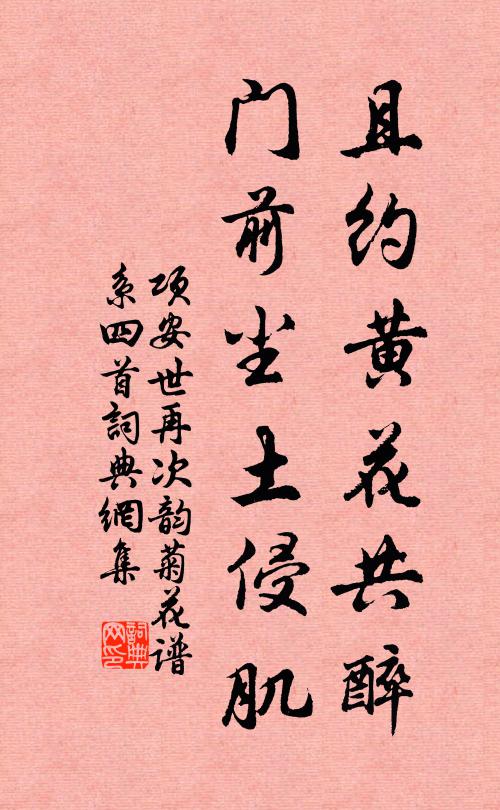 且约黄花共醉
门前尘土侵肌
项安世再次韵菊花谱
系四首詞典網集
詞典网印